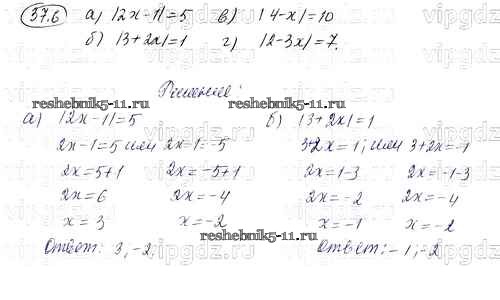 37.6 а) |2x-1|=5 в) |4-x|=10
б) |3+2x|=1 г) |2-3x|=7.
Решение:
reshebnik5-11.ru reshebnik5-11.ru
а) |2x-1|=5
2x-1=5 или 2x-1=-5
2x=5+1 2x=-5+1
2x=6 2x=-4
x=3 x=-2
Ответ: 3,-2.
б) |3+2x|=1
3+2x=1; или 3+2x=-1
2x=1-3 2x=-1-3
2x=-2 2x=-4
x=-1 x=-2
Ответ: -1;-2
reshebnik5-11.ru
vipgdz.ru